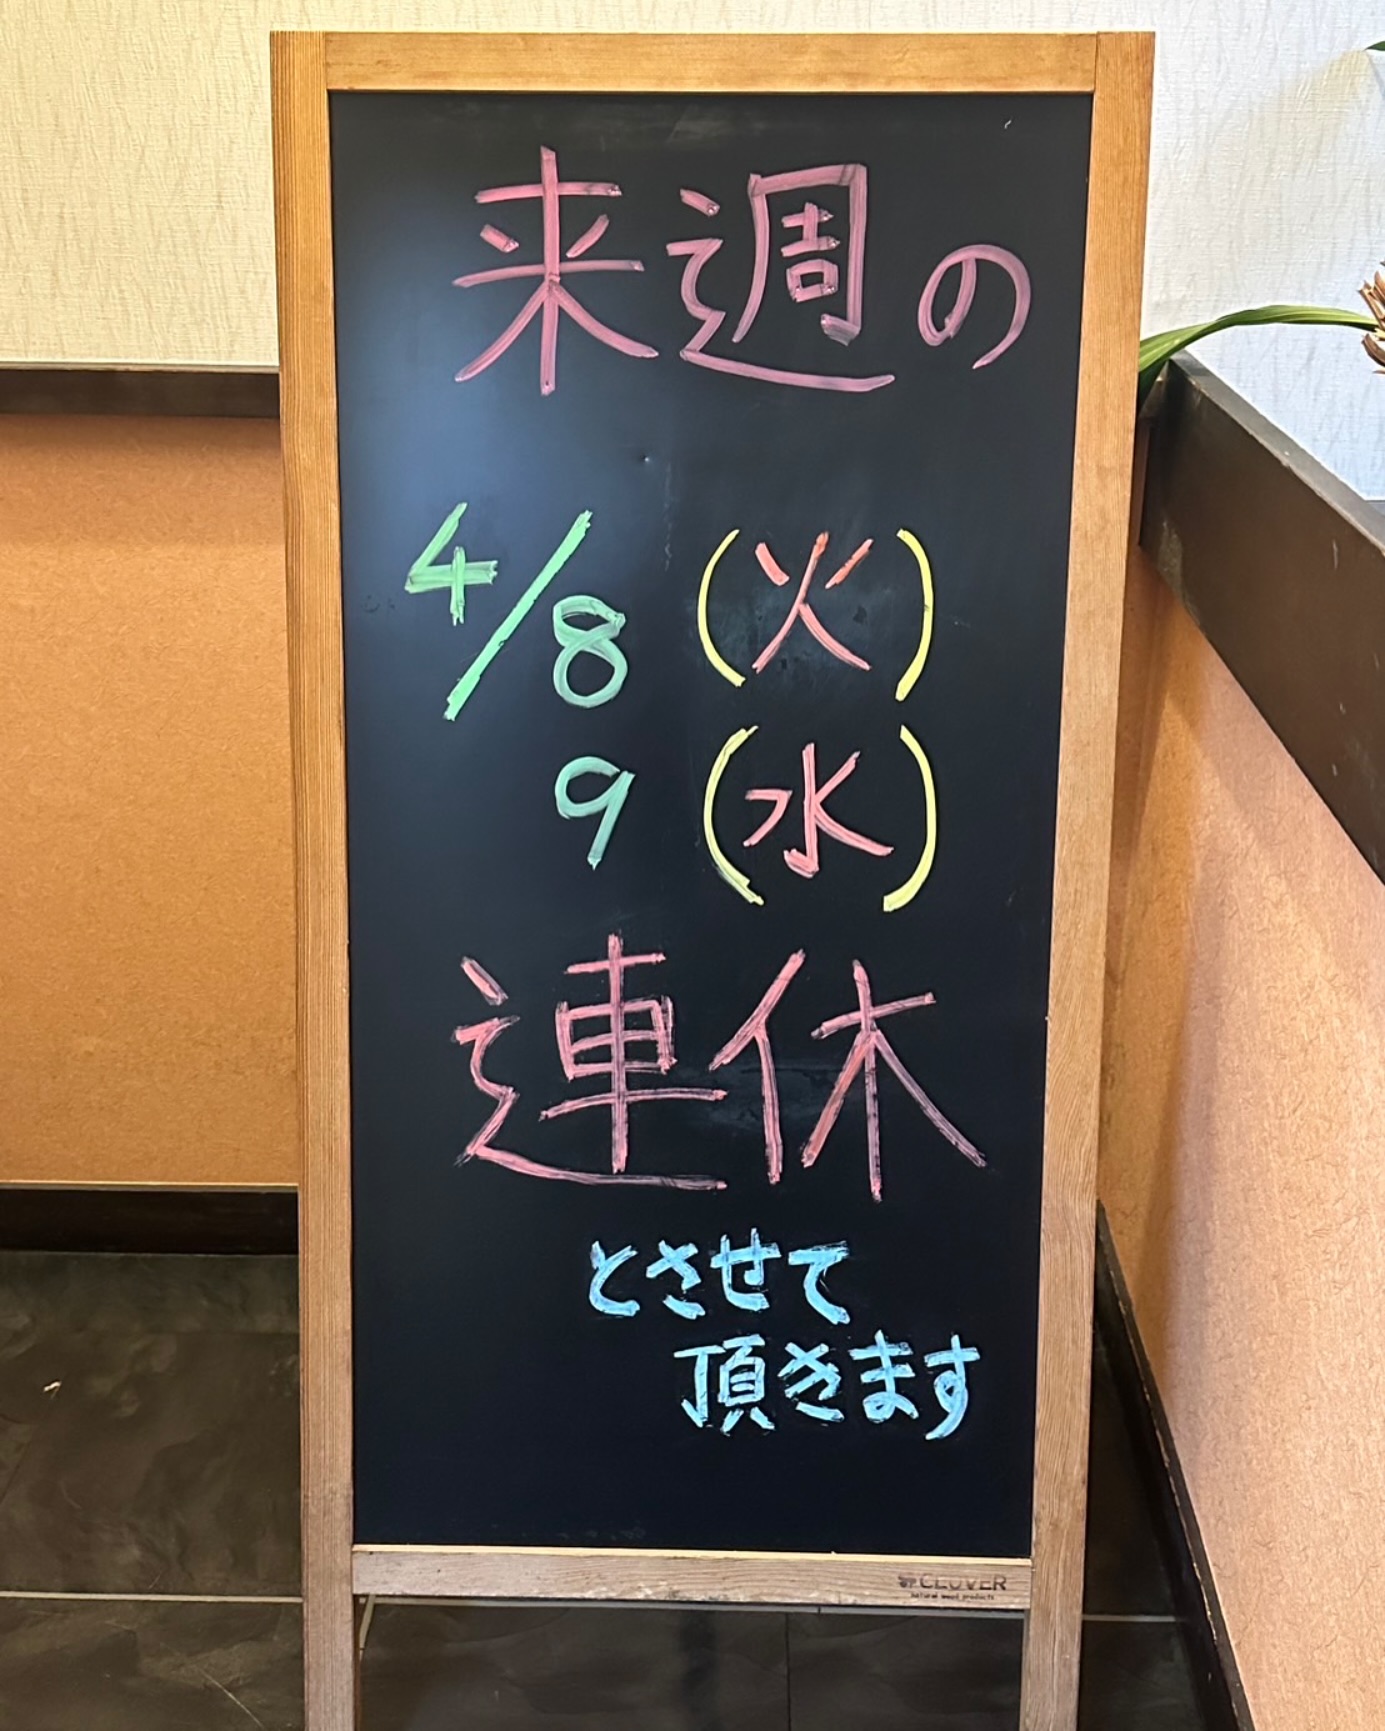 来週の
4/8(火)
9(水)
連休
とさせて
頂きます
CLOVER
natural wood products